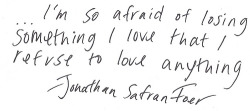 ... I'm so afraid of losing
something I love that I
refuse to love anything
Jonathan Safran Foer